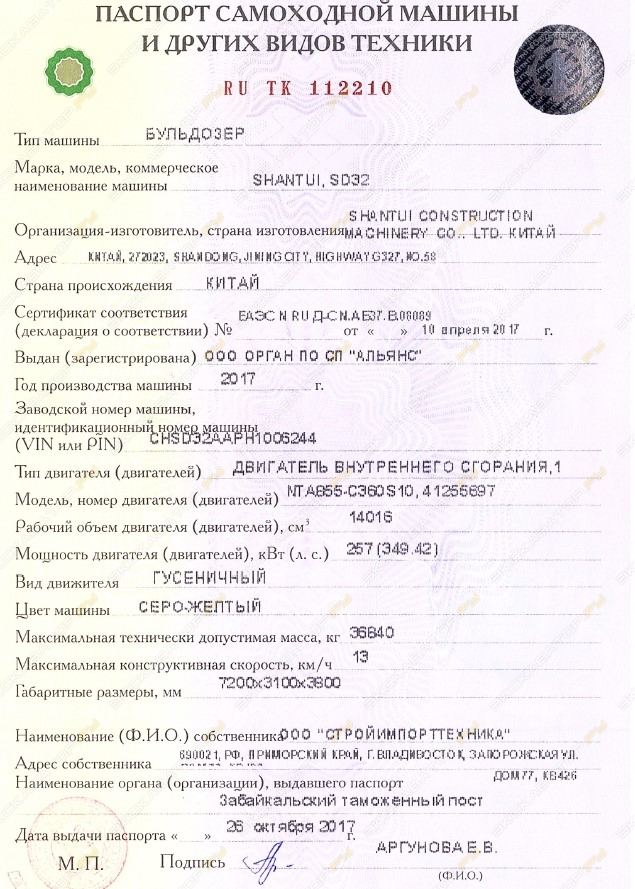 ПАСПОРТ САМОХОДНОЙ МАШИНЫ
И ДРУГИХ ВИДОВ ТЕХНИКИ
RU ТК 112210
Тип машины БУЛЬДОЗЕР
Марка, модель, коммерческое
наименование машины SHANTUI, SD32
SHANTUI CONSTRUCTION
Организация-изготовитель, страна изготовления MACHINERY CO., LTD. КИТАЙ
Адрес КИТАЙ, 272023, SHANDONG, JINING CITY, HIGHWAY G327, NO.58
Страна происхождения КИТАЙ
Сертификат соответствия ЕАЭС N RU Д-CN.АБ37.В.08089
(декларация о соответствии) № от « » 10 апреля 2017 г.
Выдан (зарегистрирована) ООО ОРГАН ПО СП "АЛЬЯНС"
Год производства машины 2017 г.
Заводской номер машины,
идентификационный номер машины
(VIN или PIN) CHSD32AAPH1006244
Тип двигателя (двигателей) ДВИГАТЕЛЬ ВНУТРЕННЕГО СГОРАНИЯ,1
Модель, номер двигателя (двигателей) NTA855-C360S10, 41255697
Рабочий объем двигателя (двигателей), см³ 14016
Мощность двигателя (двигателей), кВт (л. с.) 257 (349.42)
Вид движителя ГУСЕНИЧНЫЙ
Цвет машины СЕРО-ЖЕЛТЫЙ
Максимальная технически допустимая масса, кг 36840
Максимальная конструктивная скорость, км/ч 13
Габаритные размеры, мм 7200х3100х3800
Наименование (Ф.И.О.) собственника ООО "СТРОЙИМПОРТТЕХНИКА"
Адрес собственника 690021, РФ, ПРИМОРСКИЙ КРАЙ, Г.ВЛАДИВОСТОК, ЗАПОРОЖСКАЯ УЛ.
Наименование органа (организации), выдавшего паспорт ДОМ 77, КВ426
Забайкальский таможенный пост
Дата выдачи паспорта « » 26 октября 2017 г.
М. П. Подпись АРГУНОВА Е.В.
(Ф.И.О.)